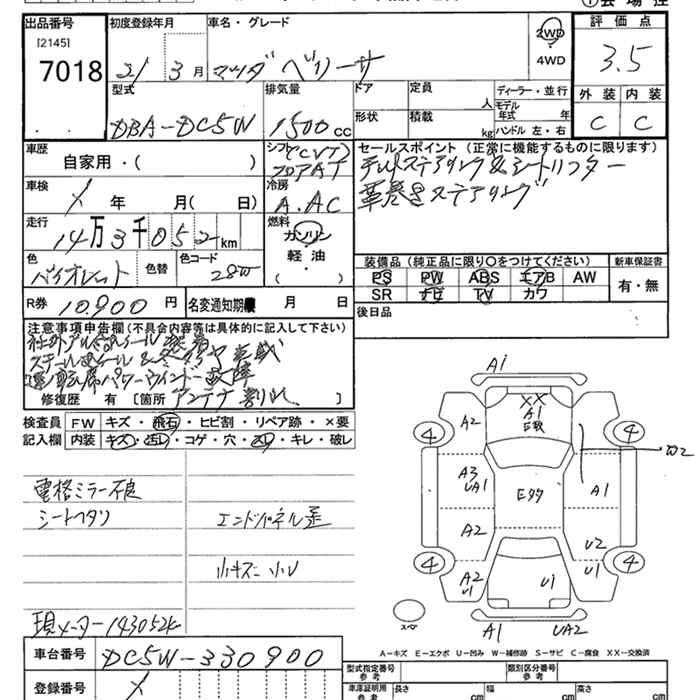 ①会場控
出品番号
[2145]
7018
初度登録年月
21 3月
車名・グレード
マツダ ベリーサ
2WD
・
4WD
評価点
3.5
外装 内装
C C
型式
DBA-DC5W
排気量
1500cc
ドア
形状
定員
人
積載
kg
ディーラー・並行
モデル年式 年
ハンドル 左・右
車歴
自家用・( )
シフト (CVT)
フロアAT
セールスポイント (正常に機能するものに限ります)
革巻きステアリング
車検
年 月( 日)
冷房
A.AC
走行
14万3千052km
燃料
ガソリン
軽油
( )
色
バイオレット
色替
色コード
28W
装備品 (純正品に限り○をつけてください)
PS PW ABS エアB AW
SR ナビ TV カワ
新車保証書
有・無
R券 10,900円
名変通知期限 月 日
後日品
注意事項申告欄(不具合内容等は具体的に記入して下さい)
運転席パワーウインドー故障
修復歴 有 〔箇所 アンテナ割れ 〕
検査員記入欄
FW キズ・飛石・ヒビ割・リペア跡・×要
内装 キズ・汚れ・コゲ・穴・スレ・キレ・破レ
電格ミラー不良
シートヘタリ
エンドパネル歪
小キズ 小U
現メーター143052K
A1
XX
A1
E数
A2
4
4
W2
A3
UA1
Eタタ
A1
A2
U2
4
A2
U1
U1
U1
4
スペ
A1 UA2
A-キズ E-エクボ U-凹み W-補修跡 S-サビ C-腐食 XX-交換済
車台番号 DC5W-330900
登録番号
型式指定番号
参考
類別区分番号
参考
車庫証明用
参考
長さ cm
幅 cm
高さ cm